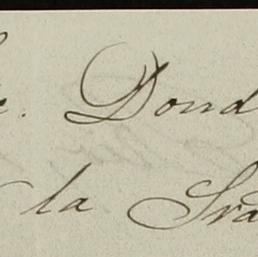 Dond
la Gra